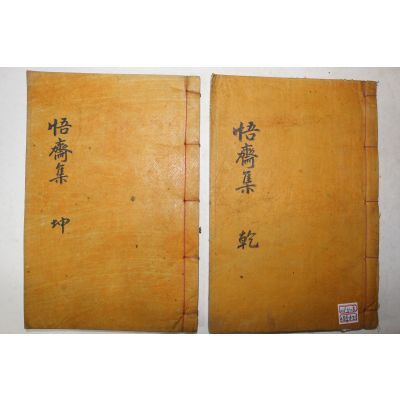 悟齋集 乾
悟齋集 坤